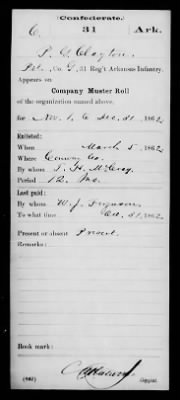 Confederate.
C 31 Ark.
P. Y. Clayton
Pvt., Co. G, 31 Reg't Arkansas Infantry.
Appears on
Company Muster Roll
of the organization named above,
for Nov. 1, to Dec. 31, 1862.
Enlisted:
When March 5, 1862
Where Conway Co.
By whom T. H. McCray
Period 12 Mo.
Last paid:
By whom W. J. Ferguson
To what time Oct. 31, 1862.
Present or absent Present
Remarks:
Book mark:
(642) Copyist.